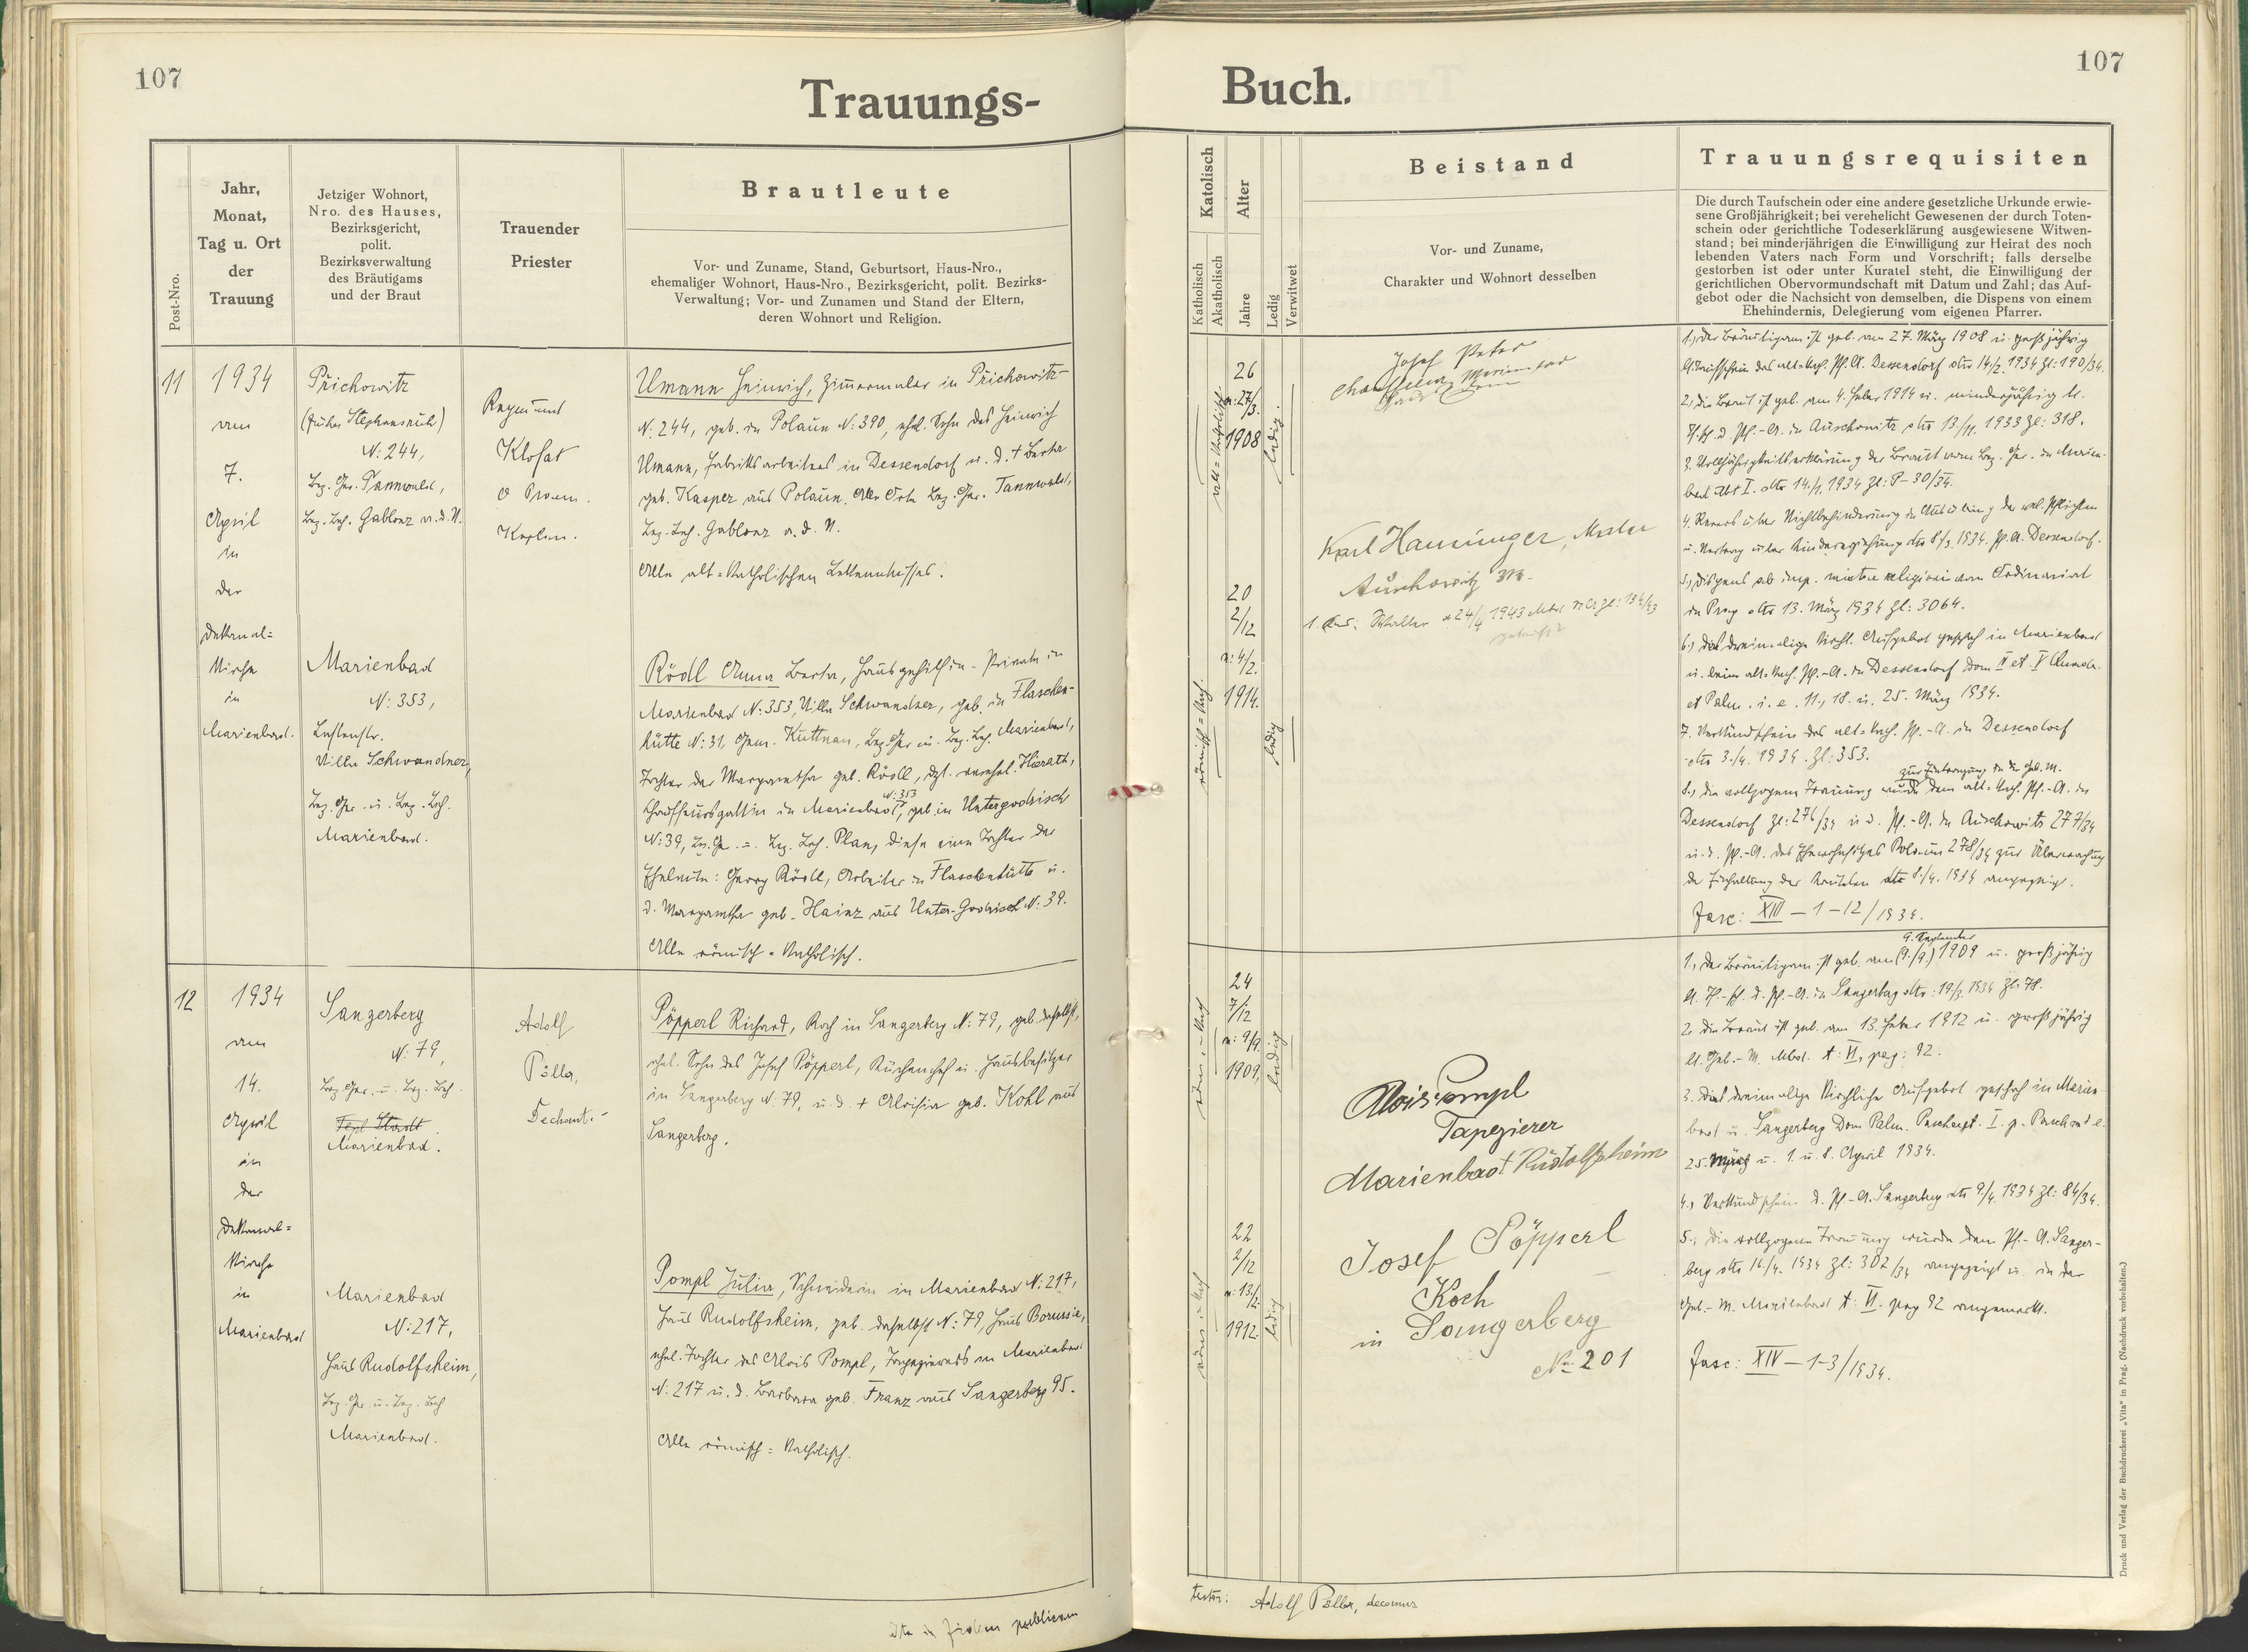 107
Trauungs-
Post-Nro.
Jahr,
Monat,
Tag u. Ort
der
Trauung
Jetziger Wohnort,
Nro. des Hauses,
Bezirksgericht,
polit.
Bezirksverwaltung
des Bräutigams
und der Braut
Trauender
Priester
Brautleute
Vor- und Zuname, Stand, Geburtsort, Haus-Nro.,
ehemaliger Wohnort, Haus-Nro., Bezirksgericht, polit. Bezirks-
Verwaltung; Vor- und Zunamen und Stand der Eltern,
deren Wohnort und Religion.
11
1934
am
7.
April
in
der
Dekanal=
Kirche
in
Marienbad.
Přichowitz
(früher Stephansruh)
N: 244,
Bez. Ger. Tannwald,
Bez. Beh. Gablonz a. d. N.
Marienbad
N: 353,
Villa Schwandner,
Bez. Ger. u. Bez. Beh.
Marienbad.
Raymund
Klofat
O Praem.
Kaplan.
Umann Heinrich, Zimmermaler in Přichowitz
N: 244, geb. in Polaun N: 390, ehel. Sohn des Heinrich
Umann, Fabriksarbeiters in Dessendorf u. d. + Berta
geb. Kasper aus Polaun. Alle Orte Bez. Ger. Tannwald,
Bez. Beh. Gablonz a. d. N.
Alle alt=katholischen Bekenntnisses.
Rödl Anna Berta, Hausgehilfin - Private in
Marienbad N: 353, Villa Schwandner, geb. in Flaschen-
hütte N: 31, Gem. Kuttnau, Bez. Ger. u. Bez. Beh. Marienbad,
Tochter der Margaretha geb. Rödl, dzt. verehel. Hierath,
Chauffeursgattin in Marienbad N: 353, geb. in Untergodrisch
N: 39, Bez. Ger. u. Bez. Beh. Plan, diese eine Tochter der
Eheleute: Georg Rödl, Arbeiter in Flaschenhütte u.
d. Margaretha geb. Hainz aus Unter-Godrisch N: 39.
Alle römisch=katholisch.
12
1934
am
14.
April
in
der
Dekanal=
Kirche
in
Marienbad
Sangerberg
N: 79,
Bez. Ger. u. Bez. Beh.
Tepl Stadt
Marienbad.
Marienbad
N: 217,
Haus Rudolfsheim,
Bez. Ger. u. Bez. Beh
Marienbad.
Adolf
Pöller,
Dechant.
Pöpperl Richard, Koch in Sangerberg N: 79, geb. daselbst,
ehel. Sohn des Josef Pöpperl, Küchenchef u. Hausbesitzer
in Sangerberg N: 79, u. d. + Aloisia geb. Kohl aus
Sangerberg.
Pompl Julia, Schneiderin in Marienbad N: 217,
Haus Rudolfsheim, geb. daselbst N: 79, Haus Borussia,
ehel. Tochter des Alois Pompl, Tapezierers in Marienbad
N: 217 u. d. Barbara geb. Franz aus Sangerberg 95.
Alle römisch=katholisch.
publicam
107
Buch.
Katolisch
Alter
Katholisch
Akatholisch
Jahre
Ledig
Verwitwet
Beistand
Vor- und Zuname,
Charakter und Wohnort desselben
Trauungsrequisiten
Die durch Taufschein oder eine andere gesetzliche Urkunde erwie-
sene Großjährigkeit; bei verehelicht Gewesenen der durch Toten-
schein oder gerichtliche Todeserklärung ausgewiesene Witwen-
stand; bei minderjährigen die Einwilligung zur Heirat des noch
lebenden Vaters nach Form und Vorschrift; falls derselbe
gestorben ist oder unter Kuratel steht, die Einwilligung der
gerichtlichen Obervormundschaft mit Datum und Zahl; das Auf-
gebot oder die Nachsicht von demselben, die Dispens von einem
Ehehindernis, Delegierung vom eigenen Pfarrer.
alt=katholisch
26
n: 27/3.
1908
ledig.
Josef Peter
Chauffeur Marienbad
Karl Hanninger, Maler
Auschowitz
20
2/12
n: 4/2.
1914.
römisch=kath.
ledig
1., Der Bräutigam ist geb. am 27. März 1908 u. großjährig
lt. Taufschein des alt=kath. Pf. A. Dessendorf dto 14/2. 1934 Zl: 190/34.
2., die Braut ist geb. am 4. Feber 1914 u. minderjährig lt.
T. sch. d. Pf.-A. in Auschowitz dto 13/11. 1933 Zl: 318.
3. Volljährigkeitserklärung der Braut vom Bez. Ger. in Marien-
bad Abt I. dto 14./1. 1934 Zl: P-30/34.
4. Revers über Nichtbehinderung in Ausübung der rel. Pflichten
u. Vertrag über Kindererziehung dto 8/3. 1934. Pf. A. Dessendorf.
5., Dispens ab imp. mixtae religionis vom Ordinariat
in Prag dto 13. März 1934 Zl: 3064.
6., das dreimalige kirchl. Aufgebot geschah in Marienbad
u. beim alt=kath. Pf.-A. in Dessendorf Dom IV et V Quadr.
et Palm. i. e. 11., 18. u. 25. März 1934.
7. Verkündschein des alt=kath. Pf.-A. in Dessendorf
dto 3./4. 1934. Zl: 353.
zur Eintragung in die Geb. M.
8., die vollzogene Trauung wurde dem alt=kath. Pf.-A. in
Dessendorf Zl: 276/34 u. d. Pf.-A. in Auschowitz 277/34
u. d. Pf.-A. des Ehewohnsitzes Polaun 278/34 zur Überwachung
der Einhaltung der Kautelen dto 8./4. 1934 angezeigt.
Fasc: XIII - 1 - 12/1934.
24
7/12
n: 9/9.
1909,
ledig
Alois Pompl
Tapezierer
Marienbad Rudolfsheim
22
2/12
n: 13/2.
1912.
ledig
Josef Pöpperl
Koch
in Sangerberg
No 201
9. September
1., Der Bräutigam ist geb. am (9./9.) 1909 u. großjährig
lt. T.-sch. d. Pf.-A. in Sangerberg dto: 19/3. 1934 Zl: 78.
2. die Braut ist geb. am 13. Feber 1912 u. großjährig
lt. Geb.-M. Mbd. t: VI, pag: 92.
3. Das dreimalige kirchliche Aufgebot geschah in Marien-
bad u. Sangerberg Dom Palm. Pascha et I. p. Pascha i. e.
25. März u. 1. u. 8. April 1934.
4., Verkündschein d. Pf.-A. Sangerberg dto 9/4. 1934 Zl: 84/34.
5., die vollzogene Trauung wurde dem Pf.-A. Sanger-
berg dto 16/4. 1934 Zl: 302/34 angezeigt u. in der
Geb.-M. Marienbad t: VI. pag 92 angemerkt.
Fasc: XIV - 1-3/1934.
Adolf Pöller, decanus
Druck und Verlag der Buchdruckerei „Vita" in Prag. (Nachdruck vorbehalten.)